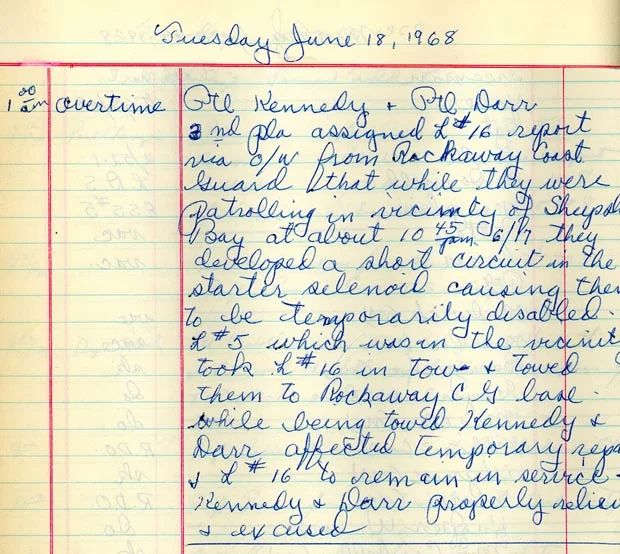 Tuesday June 18, 1968
1 00 am overtime Ptl Kennedy + Ptl Darr
2nd pla assigned L#16 report
via o/w from Rockaway Coast
Guard that while they were
patrolling in vicinity of Sheepsh
Bay at about 10 45 pm 6/17 they
developed a short circuit in the
starter selenoid causing them
to be temporarily disabled.
L#5 which was in the vicinit
took L#16 in tow & towed
them to Rockaway C G base.
While being towed Kennedy &
Darr affected temporary repa
& L#16 to remain in service.
Kennedy & Darr properly reliev
& excused